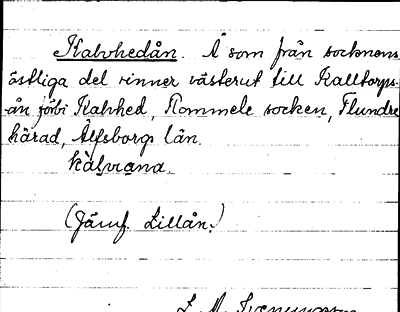 Kalvhedån. Å som från socknens
östliga del rinner västerut till Kalltorps-
ån förbi Kalvhed, Rommele socken, Flundre
härad, Älfsborgs län.
kàlvəana.
(Jämf. Lillån.)